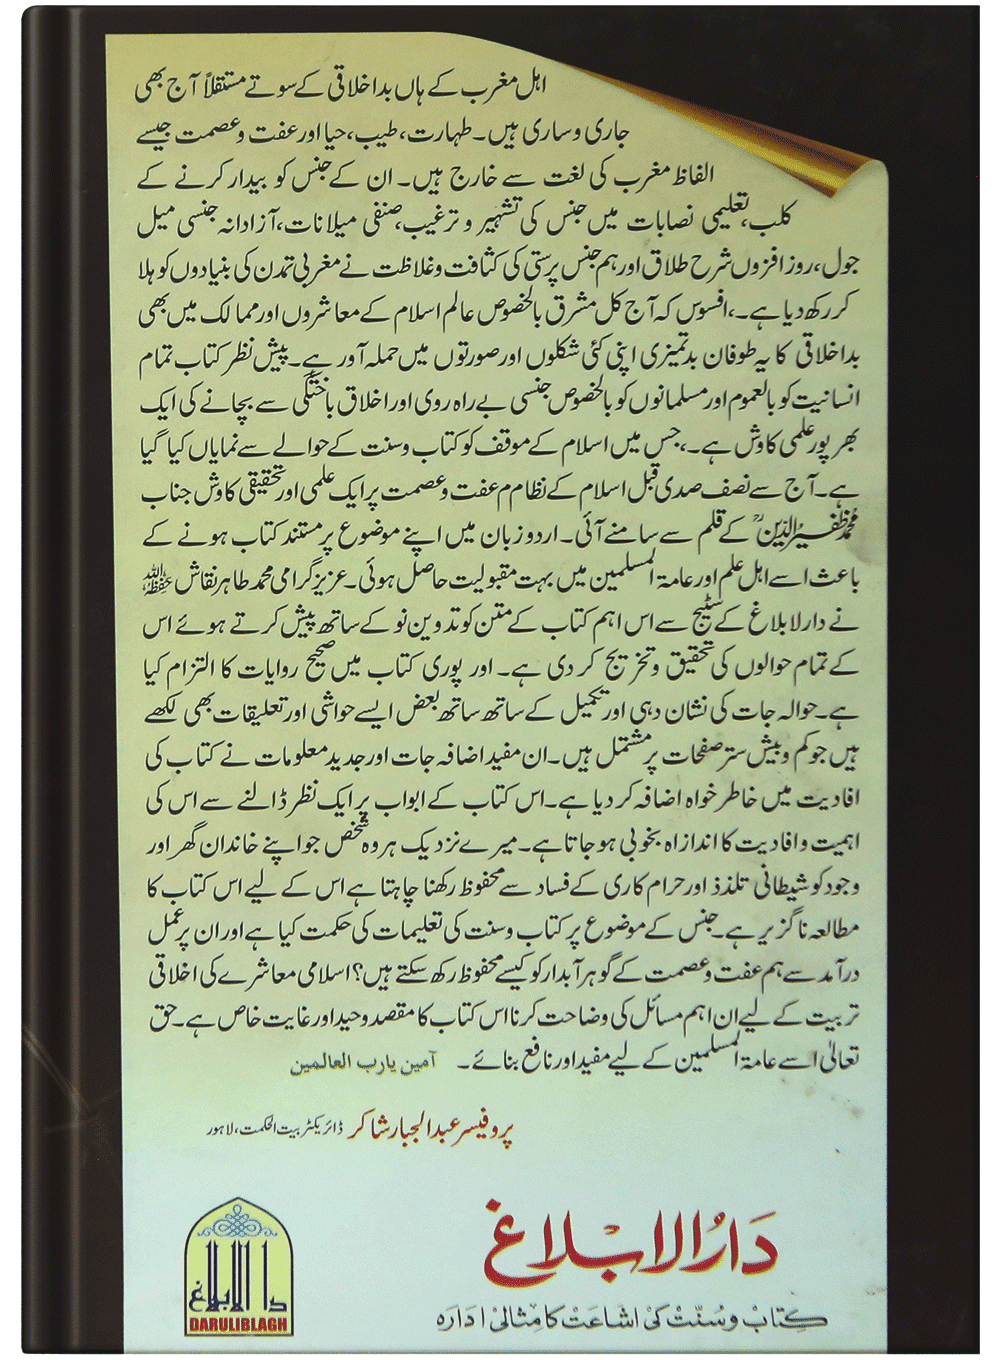 اہل مغرب کے ہاں بداخلاقی کے سوتے مستقلاً آج بھی
جاری و ساری ہیں۔ طہارت، طیب، حیا اور عفت و عصمت جیسے
الفاظ مغرب کی لغت سے خارج ہیں۔ ان کے جنس کو بیدار کرنے کے
کلب، تعلیمی نصابات میں جنس کی تشہیر و ترغیب، صنفی میلانات، آزادانہ جنسی میل
جول، روز افزوں شرح طلاق اور ہم جنس پرستی کی کثافت و غلاظت نے مغربی تمدن کی بنیادوں کو ہلا
کر رکھ دیا ہے۔، افسوس کہ آج کل مشرق بالخصوص عالم اسلام کے معاشروں اور ممالک میں بھی
بداخلاقی کا یہ طوفان بدتمیزی اپنی کئی شکلوں اور صورتوں میں حملہ آور ہے۔ پیش نظر کتاب تمام
انسانیت کو بالعموم اور مسلمانوں کو بالخصوص جنسی بے راہ روی اور اخلاق باختگی سے بچانے کی ایک
بھرپور علمی کاوش ہے۔، جس میں اسلام کے موقف کو کتاب و سنت کے حوالے سے نمایاں کیا گیا
ہے۔ آج سے نصف صدی قبل اسلام کے نظام م عفت و عصمت پر ایک علمی اور تحقیقی کاوش جناب
محمد ظفیر الدین کے قلم سے سامنے آئی۔ اردو زبان میں اپنے موضوع پر مستند کتاب ہونے کے
باعث اسے اہل علم اور عامۃ المسلمین میں بہت مقبولیت حاصل ہوئی۔ عزیز گرامی محمد طاہر نقاش حفظہ اللہ
نے دارلابلاغ کے سٹیج سے اس اہم کتاب کے متن کو تدوین نو کے ساتھ پیش کرتے ہوئے اس
کے تمام حوالوں کی تحقیق و تخریج کر دی ہے۔ اور پوری کتاب میں صحیح روایات کا التزام کیا
ہے۔ حوالہ جات کی نشان دہی اور تکمیل کے ساتھ ساتھ بعض ایسے حواشی اور تعلیقات بھی لکھے
ہیں جو کم و بیش ستر صفحات پر مشتمل ہیں۔ ان مفید اضافہ جات اور جدید معلومات نے کتاب کی
افادیت میں خاطر خواہ اضافہ کر دیا ہے۔ اس کتاب کے ابواب پر ایک نظر ڈالنے سے اس کی
اہمیت و افادیت کا اندازاہ بخوبی ہو جاتا ہے۔ میرے نزدیک ہر وہ شخص جو اپنے خاندان گھر اور
وجود کو شیطانی تلذذ اور حرام کاری کے فساد سے محفوظ رکھنا چاہتا ہے اس کے لیے اس کتاب کا
مطالعہ ناگزیر ہے۔ جنس کے موضوع پر کتاب و سنت کی تعلیمات کی حکمت کیا ہے اور ان پر عمل
درآمد سے ہم عفت و عصمت کے گوہر آبدار کو کیسے محفوظ رکھ سکتے ہیں؟ اسلامی معاشرے کی اخلاقی
تربیت کے لیے ان اہم مسائل کی وضاحت کرنا اس کتاب کا مقصد وحید اور غایت خاص ہے۔ حق
تعالیٰ اسے عامۃ المسلمین کے لیے مفید اور نافع بنائے۔ آمین یارب العالمین
پروفیسر عبدالجبار شاکر ڈائریکٹر بیت الحکمت، لاہور
دَارُالابلاغ
کتاب و سُنّت کی اشاعت کا مثالی ادارہ
دارالابلاغ
DARULIBLAGH